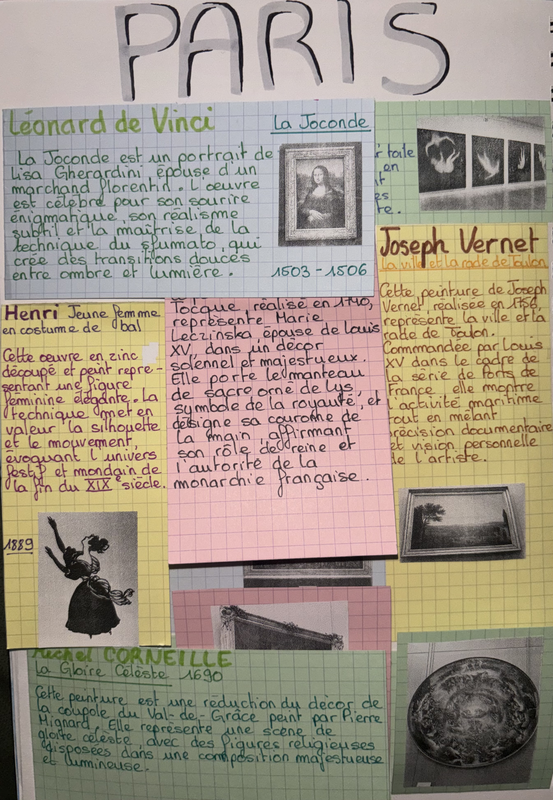 PARIS
Léonard de Vinci
La Joconde
La Joconde est un portrait de
Lisa Gherardini, épouse d'un
marchand florentin. L'oeuvre
est célèbre pour son sourire
énigmatique, son réalisme
subtil et la maîtrise de la
technique du sfumato, qui
crée des transitions douces
entre ombre et lumière.
1503-1506
toile
en
Joseph Vernet
La ville et la rade de Toulon
Cette peinture de Joseph
Vernet, réalisée en 1756,
représente la ville et la
rade de Toulon.
Commandée par Louis
XV dans le cadre de
la série de Ports de
France, elle montre
l'activité maritime
tout en mêlant
précision documentaire
et vision personnelle
de l'artiste.
Henri Jeune femme
en costume de bal
Cette oeuvre en zinc
découpé et peint repré-
sentant une figure
féminine élégante. La
technique met en
valeur la silhouette
et le mouvement,
évoquant l'univers
festif et mondain de
la fin du XIXe siècle.
1889
Tocque, réalisé en 1740,
représente Marie
Leczinska, épouse de Louis
XV, dans un décor
solennel et majestueux.
Elle porte le manteau
de sacre orné de lys,
symbole de la royauté, et
désigne sa couronne de
la main, affirmant
son rôle de reine et
l'autorité de la
monarchie française.
Michel CORNEILLE
La Gloire Céleste 1690
Cette peinture est une réduction du décor de
la coupole du Val-de-Grâce peint par Pierre
Mignard. Elle représente une scène de
gloire céleste, avec des figures religieuses
disposées dans une composition majestueuse
et lumineuse.